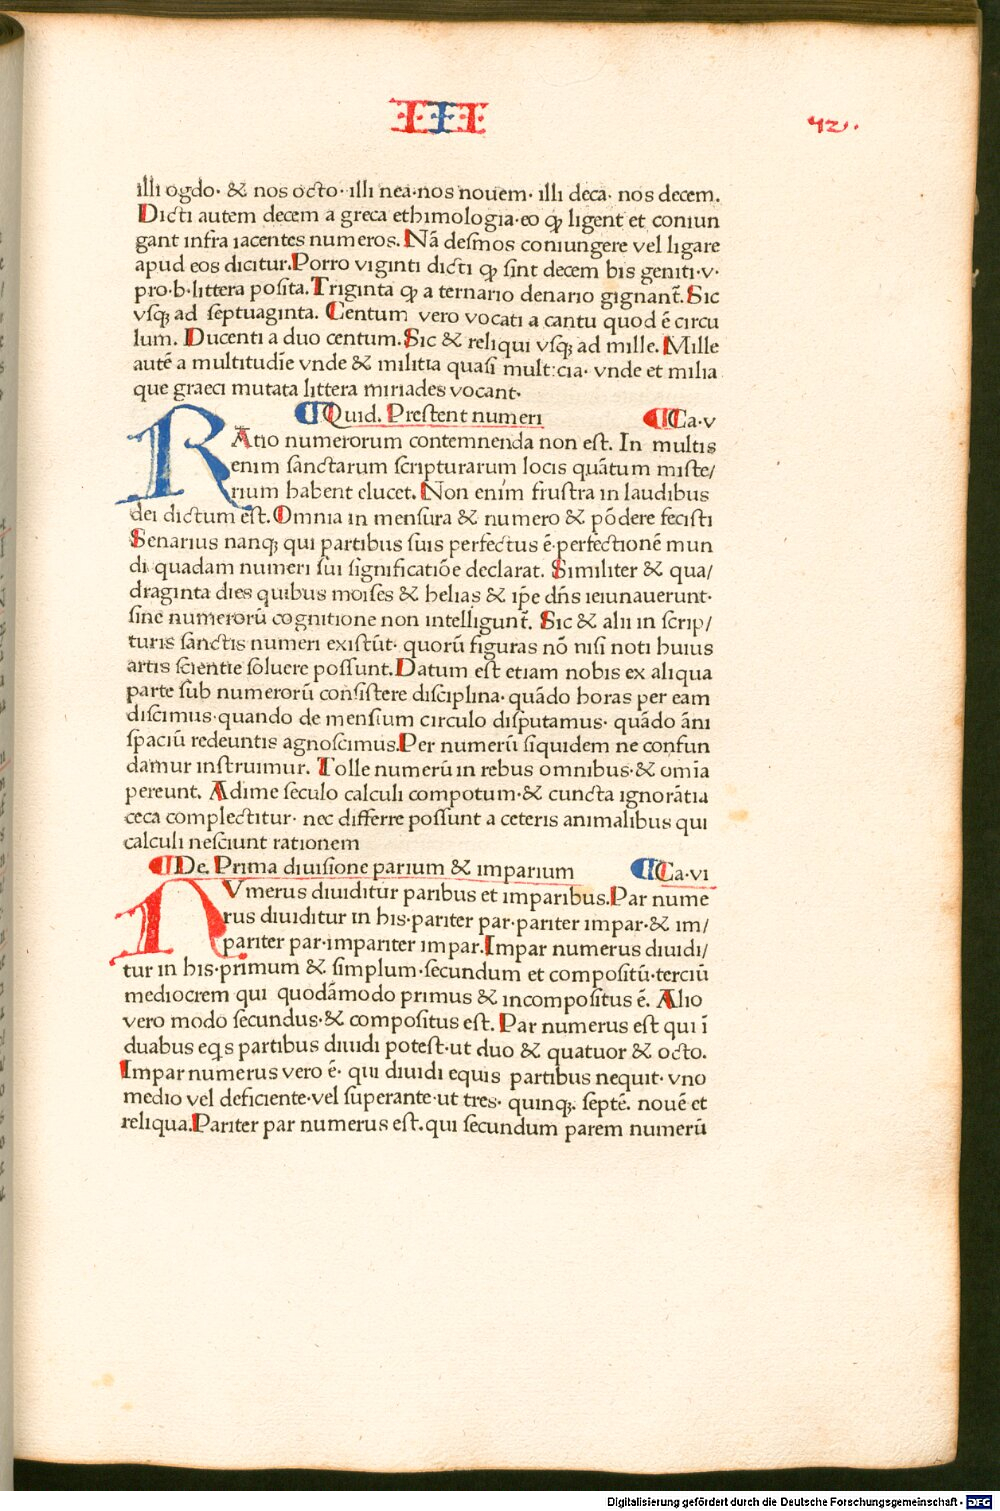 III
42.
illi ogdo· & nos octo· illi nea·nos nouem· illi deca· nos decem.
Dicti autem decem a greca ethimologia·eo ꝙ ligent et coniun
gant infra iacentes numeros. Nā desmos coniungere vel ligare
apud eos dicitur. Porro viginti dicti ꝙ sint decem bis geniti·v·
pro·b·littera posita. Triginta ꝙ a ternario denario gignant̄. Sic
vsqꝫ ad septuaginta. Centum vero vocati a cantu quod ē circu
lum. Ducenti a duo centum. Sic & reliqui vsqꝫ ad mille. Mille
autē a multitudīe vnde & militia quasi mult:cia· vnde et milia
que graeci mutata littera miriades vocant·
¶ Quid. Prestent numeri ¶ Ca·v
RAtio numerorum contemnenda non est. In multis
enim sanctarum scripturarum locis quātum miste/
rium habent elucet. Non enim frustra in laudibus
dei dictum est. Omnia in mensura & numero & pōdere fecisti
Senarius nanqꝫ qui partibus suis perfectus ē·perfectionē mun
di quadam numeri sui significatiōe declarat. Similiter & qua/
draginta dies quibus moises & helias & ip̄e dn̄s ieiunauerunt·
sine numerorū cognitione non intelligunt̄. Sic & alii in scrip/
turis sanctis numeri existūt· quorū figuras nō nisi noti huius
artis scientie soluere possunt. Datum est etiam nobis ex aliqua
parte sub numerorū consistere disciplina· quādo horas per eam
discimus·quando de mensium circulo disputamus· quādo āni
spaciū redeuntis agnoscimus. Per numerū siquidem ne confun
damur instruimur. Tolle numerū in rebus omnibus·& om̄ia
pereunt. Adime seculo calculi compotum·& cuncta ignorātia
ceca complectitur· nec differre possunt a ceteris animalibus qui
calculi nesciunt rationem
¶ De. Prima diuisione parium & imparium ¶ Ca·vi
NVmerus diuiditur paribus et imparibus. Par nume
rus diuiditur in his·pariter par·pariter impar·& im/
pariter par·impariter impar. Impar numerus diuidi/
tur in his·primum & simplum·secundum et compositū·terciū
mediocrem qui quodāmodo primus & incompositus ē. Alio
vero modo secundus·& compositus est. Par numerus est qui ī
duabus eqꝫs partibus diuidi potest·ut duo & quatuor & octo.
Impar numerus vero ē· qui diuidi equis partibus nequit· vno
medio vel deficiente·vel superante·ut tres· quinqꝫ. septē. nouē et
reliqua. Pariter par numerus est. qui secundum parem numerū
Digitalisierung gefördert durch die Deutsche Forschungsgemeinschaft - DFG